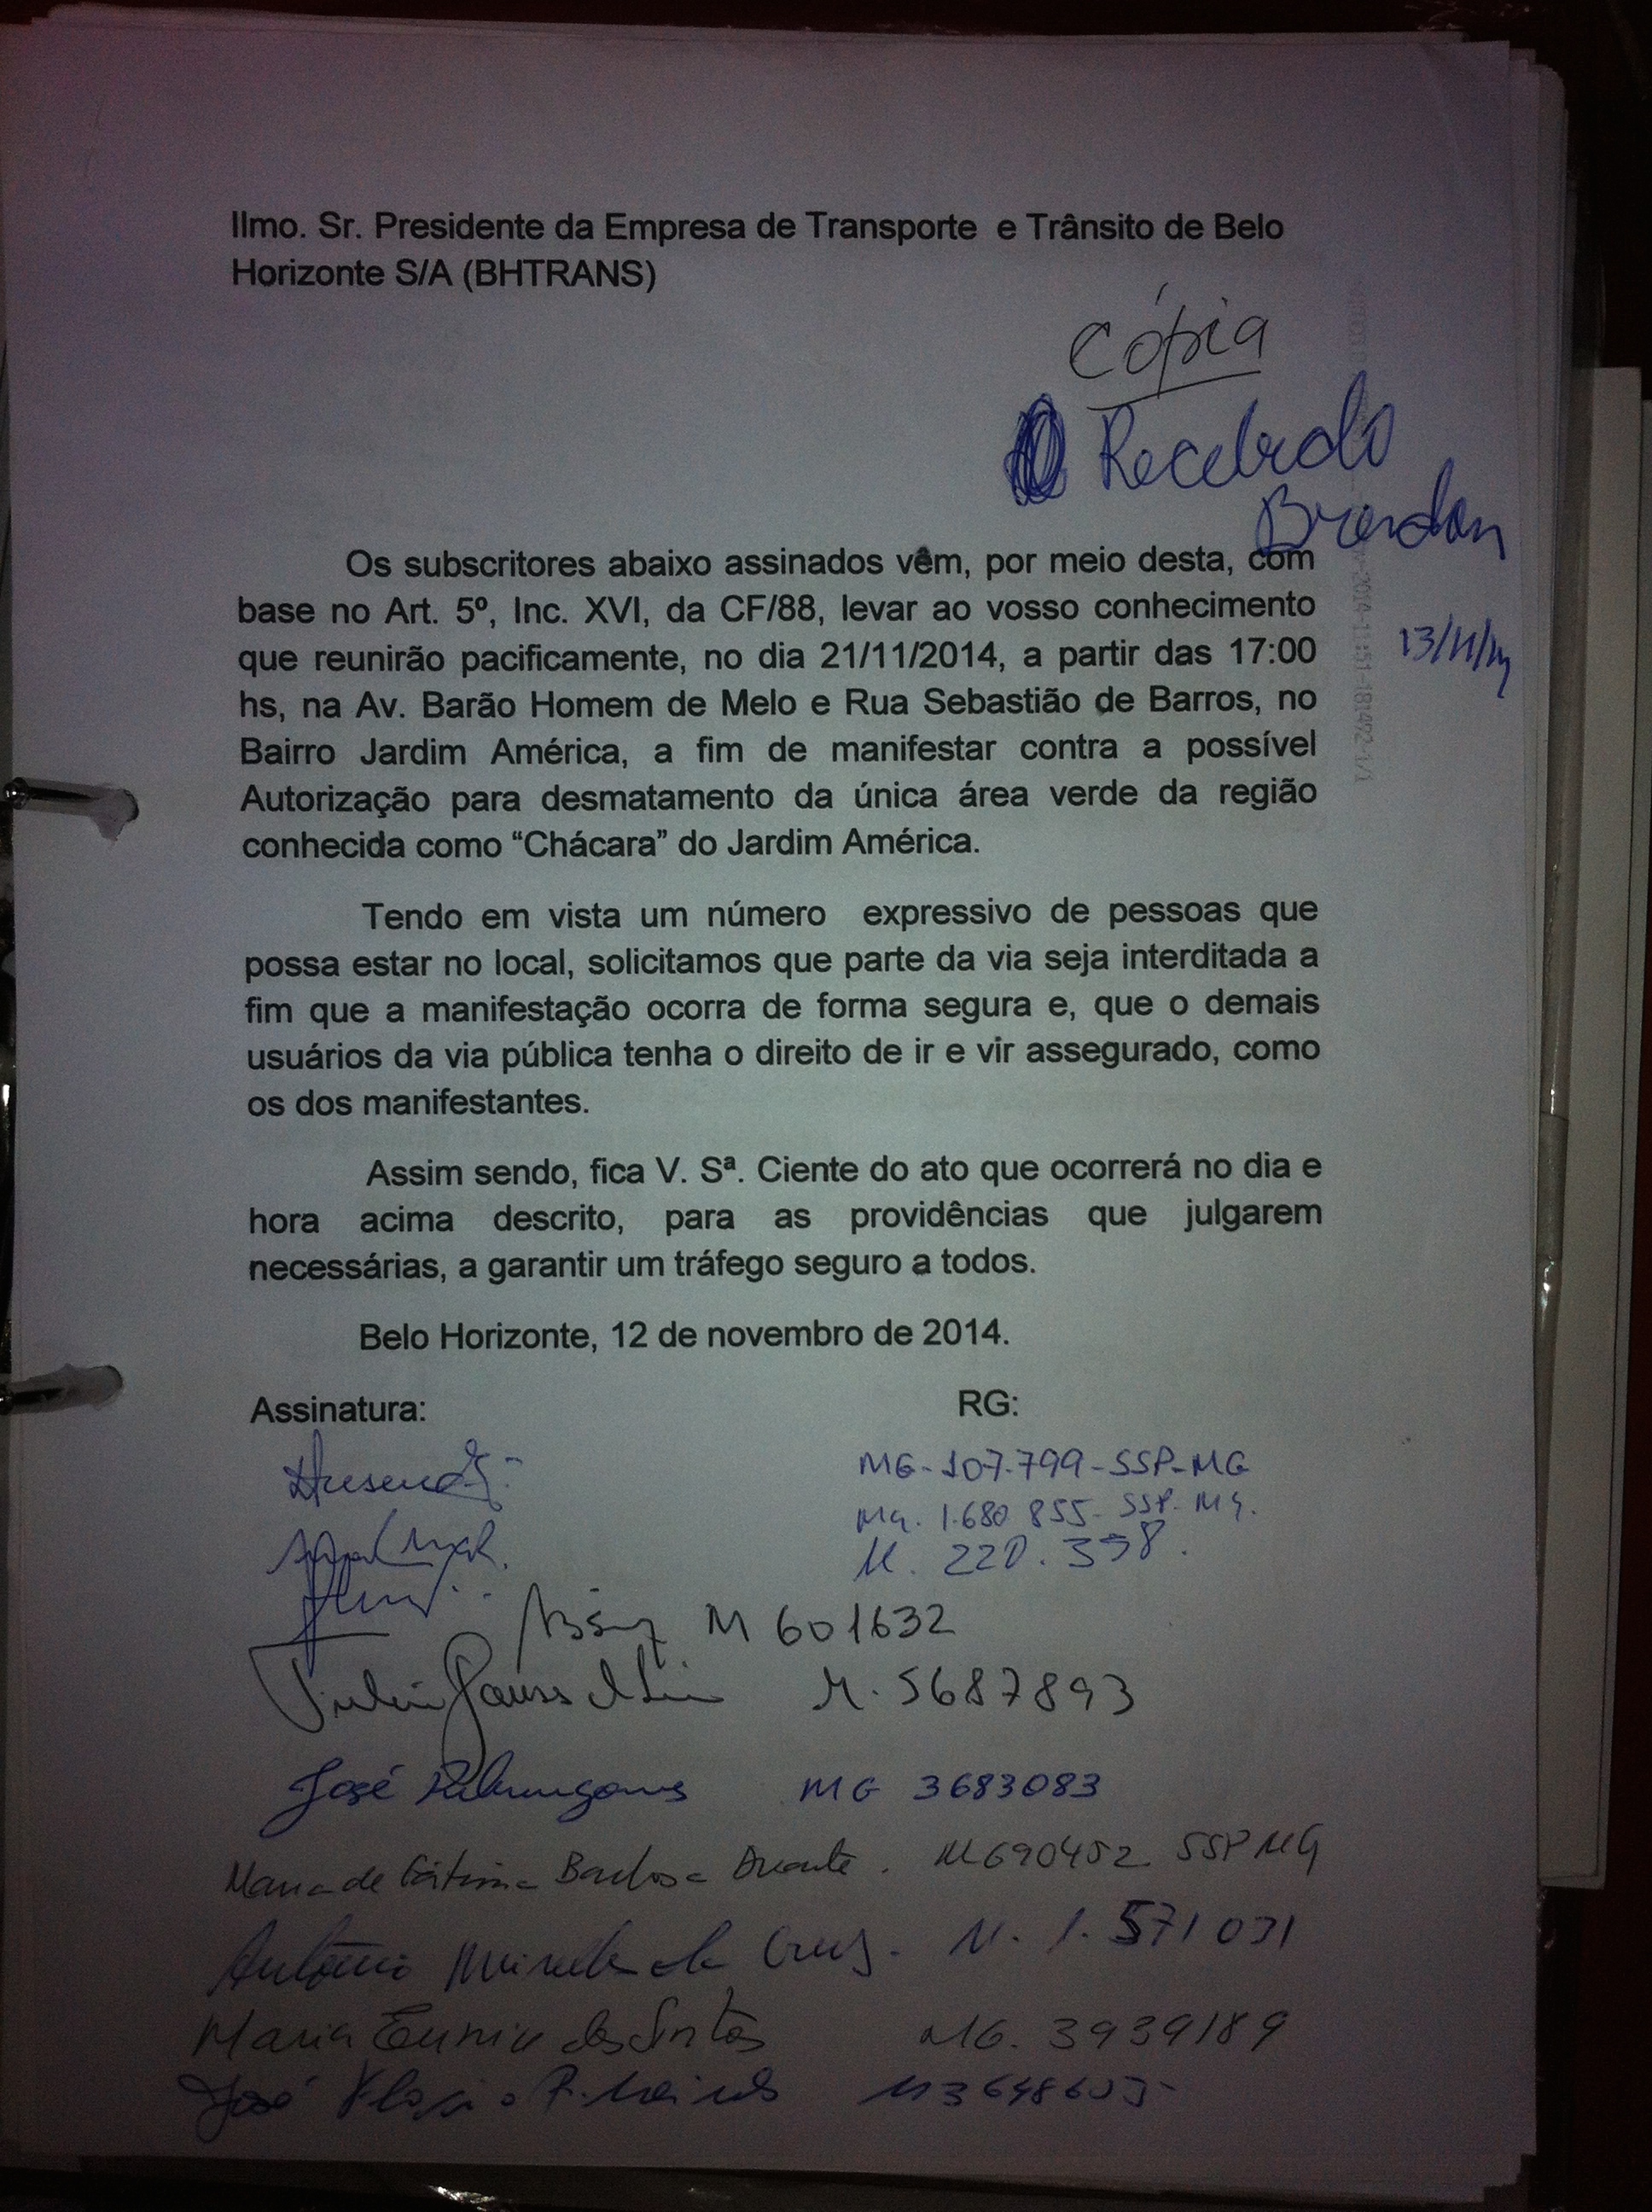 Ilmo. Sr. Presidente da Empresa de Transporte e Trânsito de Belo
Horizonte S/A (BHTRANS)
Cópia
Recebido
Brendon
13/11/14
Os subscritores abaixo assinados vêm, por meio desta, com
base no Art. 5º, Inc. XVI, da CF/88, levar ao vosso conhecimento
que reunirão pacificamente, no dia 21/11/2014, a partir das 17:00
hs, na Av. Barão Homem de Melo e Rua Sebastião de Barros, no
Bairro Jardim América, a fim de manifestar contra a possível
Autorização para desmatamento da única área verde da região
conhecida como “Chácara” do Jardim América.
Tendo em vista um número expressivo de pessoas que
possa estar no local, solicitamos que parte da via seja interditada a
fim que a manifestação ocorra de forma segura e, que o demais
usuários da via pública tenha o direito de ir e vir assegurado, como
os dos manifestantes.
Assim sendo, fica V. Sª. Ciente do ato que ocorrerá no dia e
hora acima descrito, para as providências que julgarem
necessárias, a garantir um tráfego seguro a todos.
Belo Horizonte, 12 de novembro de 2014.
Assinatura: RG:
MG-107.799-SSP-MG
MG. 1.680 855- SSP. MG.
M. 220.358.
M 601632
M. 5687893
José MG 3683083
Maria de Fátima Barbosa Duarte. M690452 SSP MG
Antônio da Cruz. M. 1.571031
Maria Eunice dos Santos MG. 3939189
José